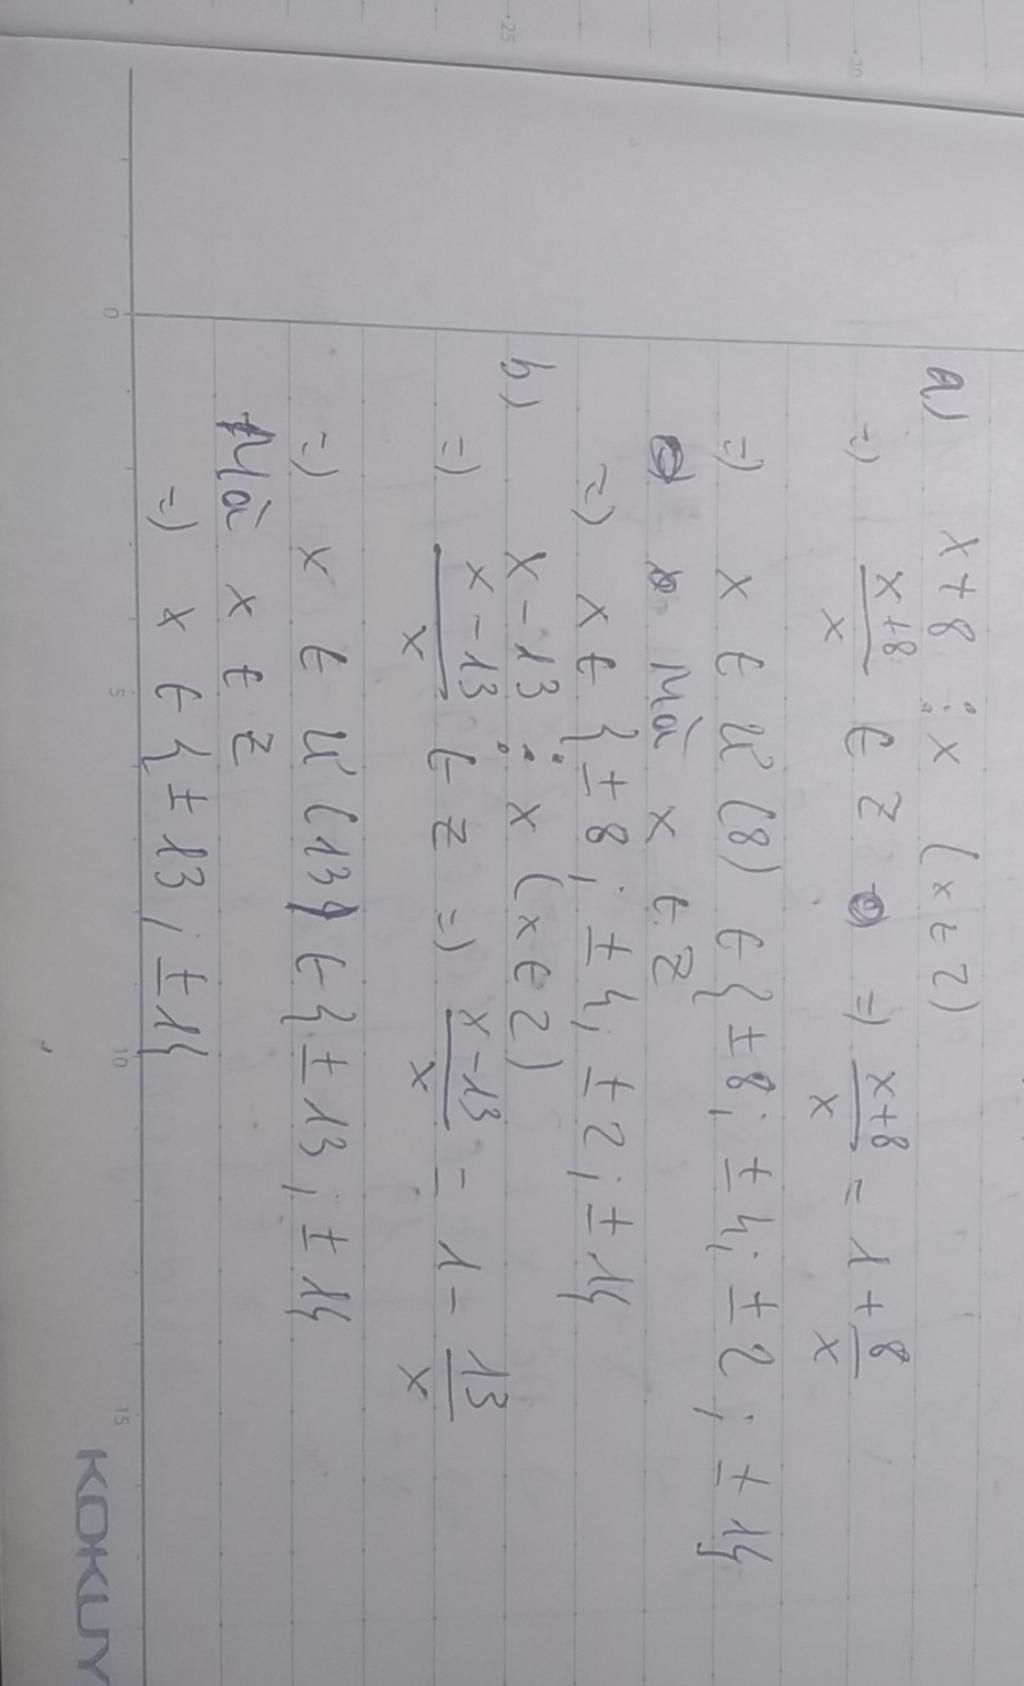 a) x + 8 ⋮ x (x ∈ Z)
=) x+8/x ∈ Z =) x+8/x = 1 + 8/x
=) x ∈ Ư (8) ∈ {±8; ±4; ±2; ±1}
Mà x ∈ Z
=) x ∈ {±8; ±4; ±2; ±1}
b) x - 13 ⋮ x (x ∈ Z)
=) x-13/x ∈ Z =) x-13/x = 1 - 13/x
=) x ∈ Ư (13) ∈ {±13; ±1}
Mà x ∈ Z
=) x ∈ {±13; ±1}
0 5 10 15
20 25
KOKUY